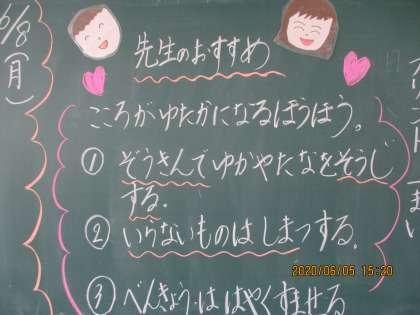 6/8(月)
先生のおすすめ
こころがゆたかになるほうほう。
① ぞうきんでゆかやたなをそうじ
する.
② いらないものはしまつする.
2020/06/05 15:30
③ べんきょうははやくすませる